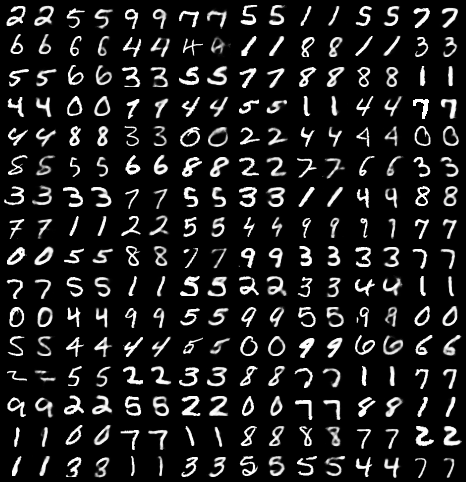 2 2 5 5 9 9 7 7 5 5 1 1 5 5 7 7
6 6 6 6 4 4 4 4 1 1 8 8 1 1 3 3
5 5 6 6 3 3 5 5 7 7 8 8 8 8 1 1
4 4 0 0 7 7 4 4 5 5 1 1 4 4 7 7
4 4 8 8 3 3 0 0 2 2 4 4 4 4 0 0
8 5 5 5 6 6 8 8 2 2 7 7 6 6 3 3
3 3 3 3 7 7 5 5 3 3 1 1 4 9 8 8
7 7 1 1 2 2 5 5 4 4 9 9 9 9 7 7
0 0 5 5 8 8 7 7 9 9 3 3 3 3 7 7
7 7 5 5 1 1 5 5 2 2 3 3 4 4 1 1
0 0 4 4 9 9 5 5 9 9 5 5 9 8 0 0
5 5 4 4 4 4 5 5 0 0 9 9 6 6 6 6
2 5 5 2 2 3 3 8 8 7 7 1 1 7 7
9 9 2 2 5 5 2 2 0 0 7 7 8 8 1 1
1 1 0 0 7 7 1 1 8 8 8 8 7 7 2 2
1 1 3 3 1 1 3 3 5 5 5 5 4 4 7 7